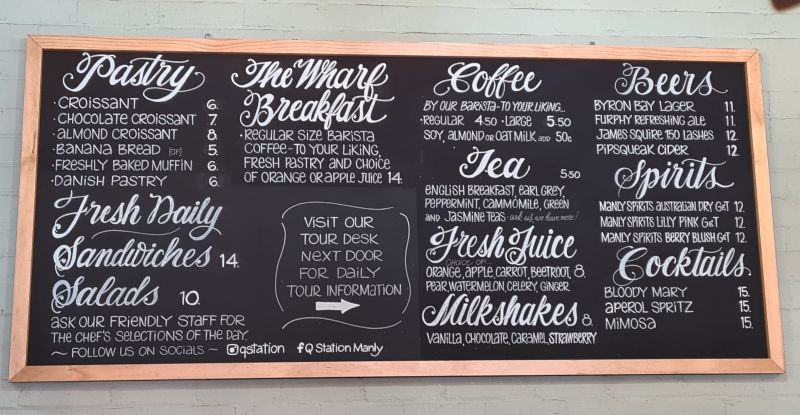 Pastry
· CROISSANT 6.
· CHOCOLATE CROISSANT 7.
· ALMOND CROISSANT 8.
· BANANA BREAD [GF] 5.
· FRESHLY BAKED MUFFIN 6.
· DANISH PASTRY 6.
Fresh Daily
Sandwiches 14.
Salads 10.
ASK OUR FRIENDLY STAFF FOR
THE CHEF'S SELECTIONS OF THE DAY.
~ FOLLOW US ON SOCIALS ~ qstation f Q Station Manly
The Wharf
Breakfast
· REGULAR SIZE BARISTA
COFFEE - TO YOUR LIKING,
FRESH PASTRY AND CHOICE
OF ORANGE OR APPLE JUICE 14.
VISIT OUR
TOUR DESK
NEXT DOOR
FOR DAILY
TOUR INFORMATION
Coffee
BY OUR BARISTA - TO YOUR LIKING...
· REGULAR 4.50 · LARGE 5.50
SOY, ALMOND OR OAT MILK ADD 50c
Tea 5.50
ENGLISH BREAKFAST, EARL GREY,
PEPPERMINT, CAMMOMILE, GREEN
AND JASMINE TEAS - ask us, we have more!
Fresh Juice
CHOICE OF...
ORANGE, APPLE, CARROT, BEETROOT, 8.
PEAR, WATERMELON, CELERY, GINGER
Milkshakes 8.
VANILLA, CHOCOLATE, CARAMEL, STRAWBERRY
Beers
BYRON BAY LAGER 11.
FURPHY REFRESHING ALE 11.
JAMES SQUIRE 150 LASHES 12.
PIPSQUEAK CIDER 12.
Spirits
MANLY SPIRITS AUSTRALIAN DRY G&T 12.
MANLY SPIRITS LILLY PINK G&T 12.
MANLY SPIRITS BERRY BLUSH G&T 12.
Cocktails
BLOODY MARY 15.
APEROL SPRITZ 15.
MIMOSA 15.